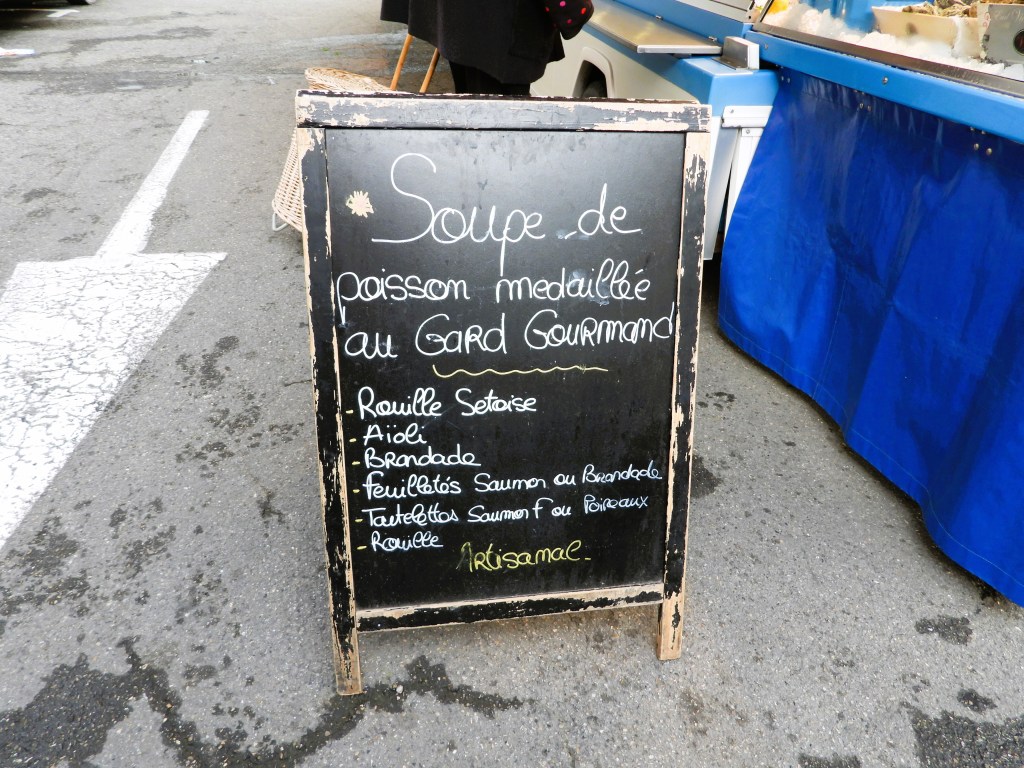 Soupe de
poisson medaillée
au Gard Gourmand
- Rouille Setoise
- Aïoli
- Brandade
- Feuilletés Saumon ou Brandade
- Tartelettes Saumon F ou Poireaux
- Rouille
Artisanal -